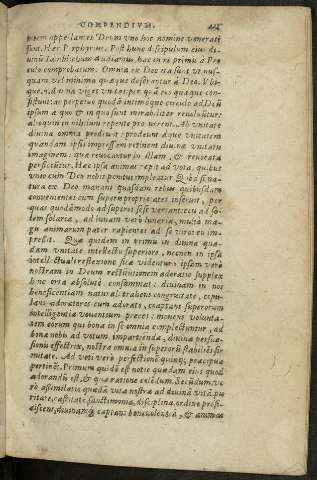 COMPENDIVM.
prem appellamus Deum uno hoc nomine venerati
sua. Hæc Porphyrius. Post hunc discipulum eius di-
uinũ Iamblichum audiamus, hac in re primũ à Pro
culo comprobatum. Omnia ex Deo ita sunt ut nus-
quam vel minima quæque deserantur à Deo. V bi-
que n. diuina viget vnitas, per quã res quæque con-
sistunt: ac perpetuo quodã intimoque circulo ad Deũ
ipsum a quo & in quo sunt mirabiliter reuoluuntur:
alioquin in nihilum repente pro uerent. Ab vnitate
diuina omnia prodeunt: prodeuntque vnitatem
quandam ipsis impressam retinent diuinæ vnitatis
imaginem: qua reuocantur in illam, & reuocata
perficiuntur. Hac ipsa animæ rapit ad vota, quibus
vnio cum Deo nobis potius impletur. Quod si na-
tura ex Deo manans quasdam rebus quibusdam
conuenientes cum superis proprietates inserit, per
quas quodãmodo ad superos sese versant: ceu ad so-
lem solaria, ad lunam verò lunaria, multo ma-
gis animarum pater rapientes ad se vires eis im-
pressit. Quæ quidem in primis in diuina qua-
dam vnitate intellectu superiore, necnon in ipsa
intellectuali reflexione sitæ videntur: ipsam verò
nostram in Deum rectitudinem adoratio supplex
hinc orta absoluit consummat: diuinam in nos
beneficentiam naturali trahens congruitate, copu-
lans adoratores cum adorato, captans superorum
intelligentia vouentium preces: mouens volunta-
tem eorum qui bona in se omnia complectuntur, ad
bona nobis ad votum impartienda, diuinæ persua-
sionis effectrix, nostra omnia in superorũ stabiliẽs fir-
mitate. Ad voti verò perfectionẽ quinque præcipua
pertinẽt. Primum quidẽ est notio quædam eius quod
adorandũ est, & qua ratione exiẽdum. Secũdum, ve
rò assimilatio quædã vita nostra ad diuinã vitã, pu-
ritate, castitate, sanctimonia, disciplina, ordine profi-
ciscens, diuinamque captans beneuolentiã, & animos